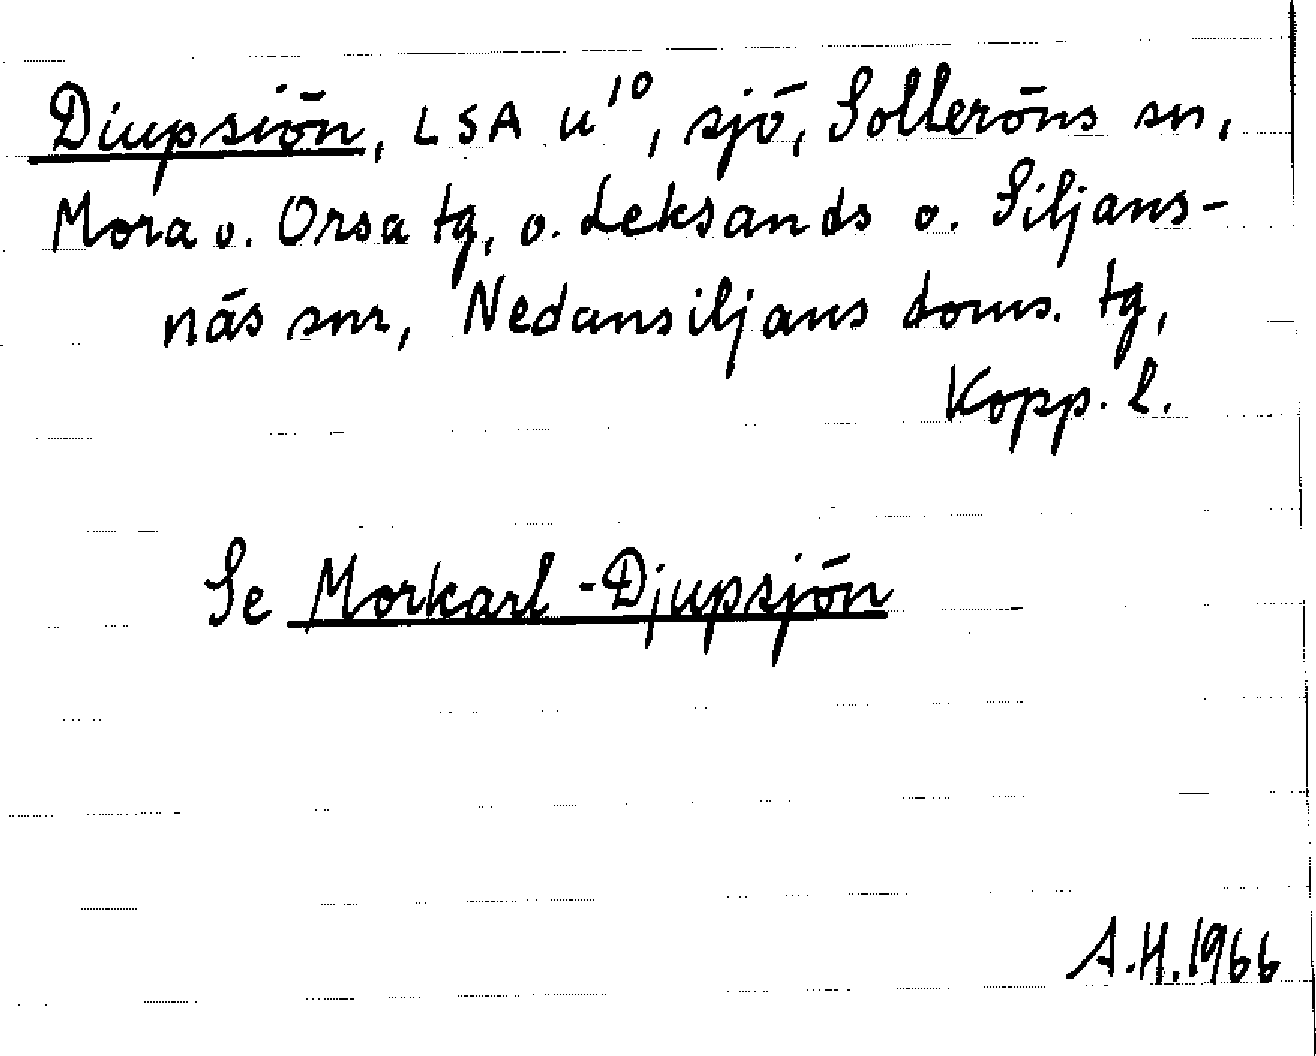 Diupsiön, LSA u¹⁰, sjö, Solleröns sn,
Mora o. Orsa tg, o. Leksands o. Siljans-
näs snr, Nedansiljans doms. tg,
Kopp. l.
Se Morkarl-Djupsjön
A.H.1966